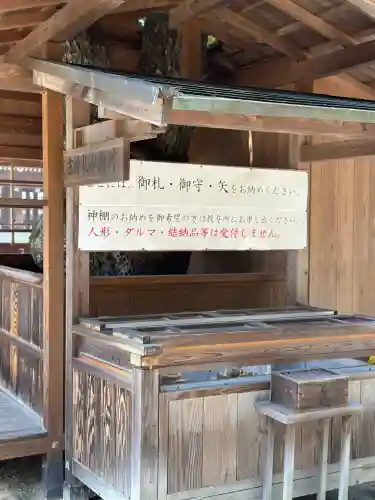 には、御札・御守・矢をお納めください。
神棚のお納めを御希望の方は授与所にお申し出ください。
人形・ダルマ・結納品等は受付しません。